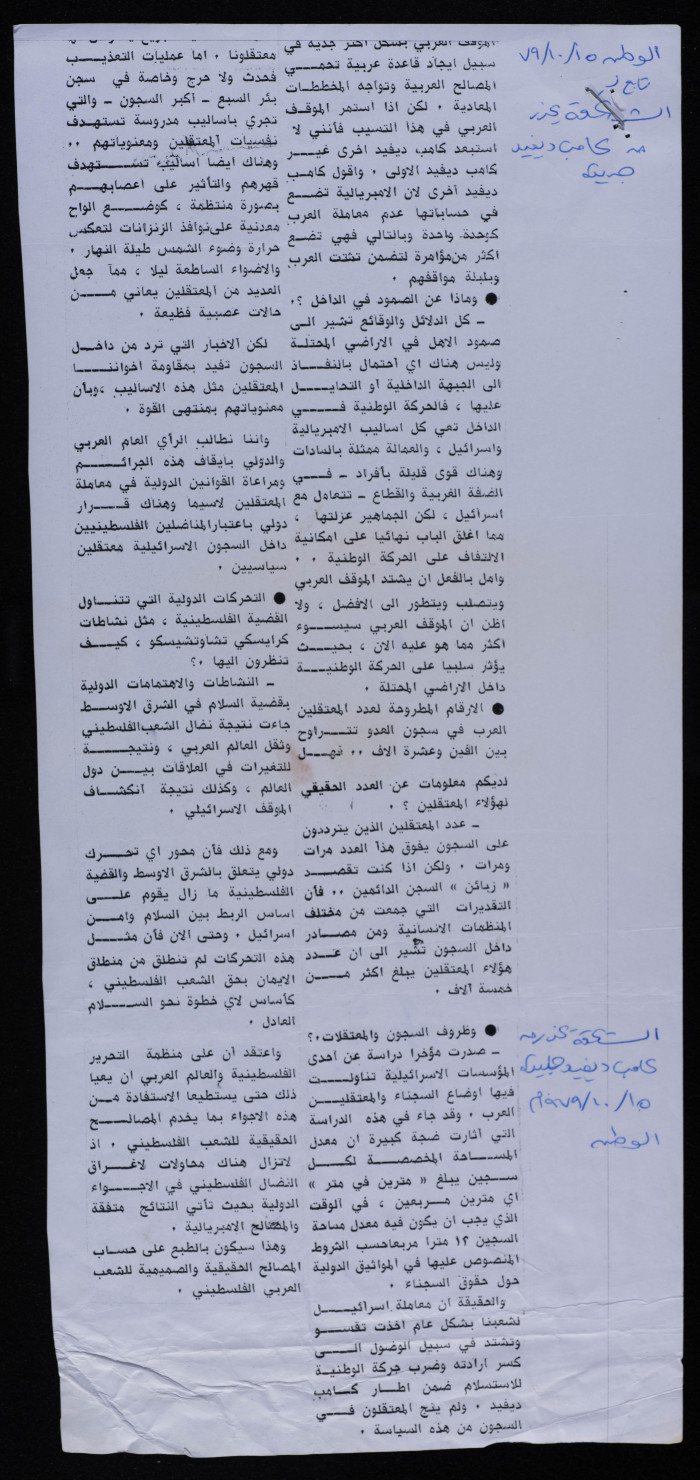 الوطن ٧٩/١٠/١٥
تابع
الشقة يحذر
من كامب ديفيد
جديدة
الموقف العربي بشكل اكثر جدية في
سبيل ايجاد قاعدة عربية تحمي
المصالح العربية وتواجه المخططات
المعادية . لكن اذا استمر الموقف
العربي في هذا التسيب فأنني لا
استبعد كامب ديفيد اخرى غير
كامب ديفيد الاولى . واقول كامب
ديفيد أخرى لان الامبريالية تضع
في حساباتها عدم معاملة العرب
كوحدة واحدة وبالتالي فهي تضع
اكثر من مؤامرة لتضمن تشتت العرب
وبلبلة مواقفهم .
● وماذا عن الصمود في الداخل ؟.
ـ كل الدلائل والوقائع تشير الى
صمود الاهل في الاراضي المحتلة
وليس هناك اي احتمال بالنفاذ
الى الجبهة الداخلية أو التحايل
عليها ، فالحركة الوطنية في
الداخل تعي كل اساليب الامبريالية
واسرائيل ، والعمالة ممثلة بالسادات
وهناك قوى قليلة بأفراد ـ في
الضفة الغربية والقطاع ـ تتعاول مع
اسرائيل ، لكن الجماهير عزلتها ،
مما اغلق الباب نهائيا على امكانية
الالتفاف على الحركة الوطنية . .
وامل بالفعل ان يشتد الموقف العربي
ويتصلب ويتطور الى الافضل ، ولا
اظن ان الموقف العربي سيسوء
اكثر مما هو عليه الان ، بحيث
يؤثر سلبيا على الحركة الوطنية
داخل الاراضي المحتلة .
● الارقام المطروحة لعدد المعتقلين
العرب في سجون العدو تتراوح
بين الفين وعشرة الاف .. فهل
لديكم معلومات عن العدد الحقيقي
لهؤلاء المعتقلين ؟ .
ـ عدد المعتقلين الذين يترددون
على السجون يفوق هذا العدد مرات
ومرات . ولكن اذا كنت تقصد
« زبائن » السجن الدائمين .. فأن
التقديرات التي جمعت من مختلف
المنظمات الانسانية ومن مصادر
داخل السجون تشير الى ان عدد
هؤلاء المعتقلين يبلغ اكثر من
خمسة آلاف .
● وظروف السجون والمعتقلات.؟
ـ صدرت مؤخرا دراسة عن احدى
المؤسسات الاسرائيلية تناولت
فيها اوضاع السجناء والمعتقلين
العرب . وقد جاء في هذه الدراسة
التي أثارت ضجة كبيرة ان معدل
المساحة المخصصة لكل
سجين يبلغ « مترين في متر »
اي مترين مربعين ، في الوقت
الذي يجب ان يكون فيه معدل مساحة
السجين ١٢ مترا مربعاحسب الشروط
المنصوص عليها في المواثيق الدولية
حول حقوق السجناء .
والحقيقة ان معاملة اسرائيل
لشعبنا بشكل عام اخذت تقسو
وتشتد في سبيل الوصول الى
كسر ارادته وضرب حركة الوطنية
للاستسلام ضمن اطار كامب
ديفيد . ولم ينج المعتقلون في
السجون من هذه السياسة .
معتقلونا . اما عمليات التعذيب
فحدث ولا حرج وخاصة في سجن
بئر السبع ـ أكبر السجون ـ والتي
تجري بأساليب مدروسة تستهدف
نفسيات المعتقلين ومعنوياتهم ..
وهناك ايضا أساليب تستهدف
قهرهم والتأثير على اعصابهم
بصورة منتظمة ، كوضع الواح
معدنية على نوافذ الزنزانات لتعكس
حرارة وضوء الشمس طيلة النهار .
والاضواء الساطعة ليلا ، مما جعل
العديد من المعتقلين يعاني من
حالات عصبية فظيعة .
لكن الاخبار التي ترد من داخل
السجون تفيد بمقاومة اخواننا
المعتقلين مثل هذه الاساليب ،وبأن
معنوياتهم بمنتهى القوة .
واننا نطالب الرأي العام العربي
والدولي بايقاف هذه الجرائم
ومراعاة القوانين الدولية في معاملة
المعتقلين لاسيما وهناك قرار
دولي باعتبار المناضلين الفلسطينيين
داخل السجون الاسرائيلية معتقلين
سياسيين .
● التحركات الدولية التي تتناول
القضية الفلسطينية ، مثل نشاطات
كرايسكي تشاوتشيسكو ، كيف
تنظرون اليها .؟
ـ النشاطات والاهتمامات الدولية
بقضية السلام في الشرق الاوسط
جاءت نتيجة نضال الشعب الفلسطيني
وثقل العالم العربي ، ونتيجة
للتغيرات في العلاقات بين دول
العالم ، وكذلك نتيجة أنكشاف
الموقف الاسرائيلي .
ومع ذلك فأن محور اي تحرك
دولي يتعلق بالشرق الاوسط والقضية
الفلسطينية ما زال يقوم على
اساس الربط بين السلام وامن
اسرائيل . وحتى الان فأن مثل
هذه التحركات لم تنطلق من منطلق
الايمان بحق الشعب الفلسطيني ،
كأساس لاي خطوة نحو السلام
العادل .
واعتقد أن على منظمة التحرير
الفلسطينية والعالم العربي ان يعيا
ذلك حتى يستطيعا الاستفادة من
هذه الاجواء بما يخدم المصالح
الحقيقية للشعب الفلسطيني . اذ
لاتزال هناك محاولات لاغراق
النضال الفلسطيني في الاجواء
الدولية بحيث تأتي النتائج متفقة
والمصالح الامبريالية .
وهذا سيكون بالطبع على حساب
المصالح الحقيقية والصميمية للشعب
العربي الفلسطيني .
الشقة يحذر من
كامب ديفيد جديدة
١٩٧٩/١٠/١٥م
الوطن